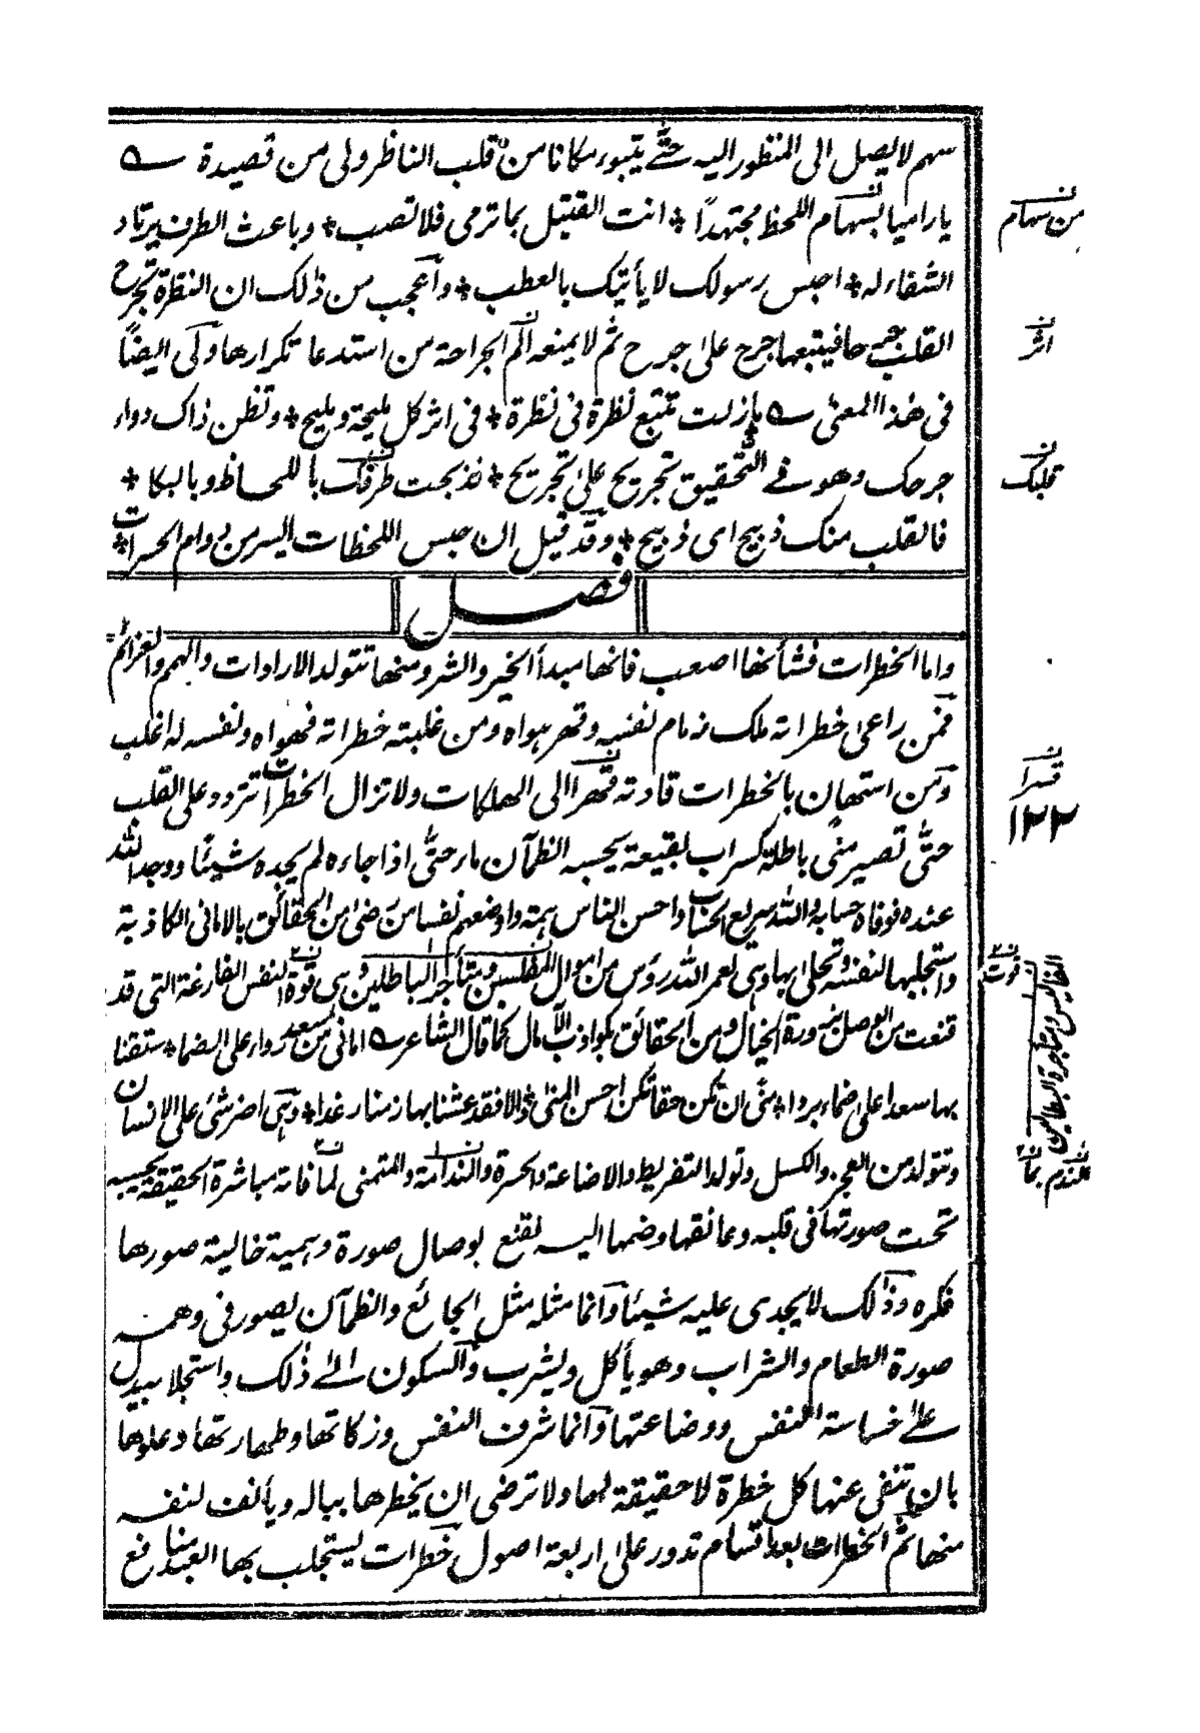 سهم لا يصل الى المنظور اليه حتّٰى يتبوء مكانا من قلب الناظر ولى من قصيدة ؎
يا راميا بسهام اللحظ مجتهدًا * انت القتيل بما ترمى فلا تصب * وباعث الطرف يرتاد
الشفاء له * احبس رسولك لا يأتيك بالعطب * واعجب من ذٰلك ان النظرة تجرح
القلب جرحا فيتبعها جرح علىٰ جرح ثم لا يمنعه الم الجراحة من استدعا تكرارها ولى ايضاً
فى هٰذا المعنىٰ ؎ ما زلت تتبع نظرة فى نظرة * فى اثر كل مليحة ومليح * وتظن ذاك دواء
جرحك وهو فے التحقيق تجريح علىٰ تجريح * فذبحت طرفك باللحاظ وبالبكا *
فالقلب منك ذبيح اى ذبيح * وقد قيل ان حبس اللحظات ايسر من دوام الحسرات *
فصل
واما الخطرات فشأنها اصعب فانها مبدأ الخير والشر ومنها تتولد الارادات والهمم والعزائم
فمن راعى خطراته ملك زمام نفسه وقهر هواه ومن غلبته خطراته فهواه ونفسه له اغلب
ومن استهان بالخطرات قادته قهرا الى الهلكات ولا تزال الخطرات تتردد على القلب
حتّٰى تصير منًى باطلة كسراب بقيعة يحسبه الظمآن ماء حتّٰى اذا جاءه لم يجده شيئًا ووجد اللّٰه
عنده فوفاه حسابه واللّٰه سريع الحساب واحسن الناس همة واوضعهم نفسا من رضى من الحقائق بالامانى الكاذبة
واستجلبها لنفسه وتحلى بها وهى لعمر اللّٰه رؤس من اموال المفلسين ومتأجر الباطلين وهى قوة النفس الفارغة التى قد
قنعت من الوصل بزورة الخيال ومن الحقائق بكواذب الآمال كما قال الشاعر ؎ امانى من سعد رواء على الضماء * ستقنا
بها سعدا على ضماء بردا * منًى ان تكن حقا تكن احسن المنىٰ * والا فقد عشنا بها زمنا رغدا * وهى اضر شئ على الانسان
وتتولد من العجز والكسل وتولد التفريط والاضاعة والحسرة والندامة والمتمنى لما فاته مباشرة الحقيقة بحسه
تحت صورتها فى قلبه وعانقها وضمها اليه لقنع بوصال صورة وهمية خالية صورها
فكره وذٰلك لا يجدى عليه شيئا وانما مثله مثل الجائع والظمآن يصور فى وهمه
صورة الطعام والشراب وهو يأكل ويشرب والسكون الىٰ ذٰلك واستجلابه يدل
علىٰ خساسة النفس ووضاعتها وانما شرف النفس وزكاتها وطهارتها وعلوها
بان تنفى عنها كل خطرة لا حقيقة لها ولا ترضى ان يخطرها بباله ويأنف لنفسه
منها ثم الخطرات بعد اقسام تدور علىٰ اربعة اصول خطرات يستجلب بها العبد منافع
من سهام
اثر
قلبك
قسرا
۱۲۲
قوت
المفاليس ومتاجرة البطالين